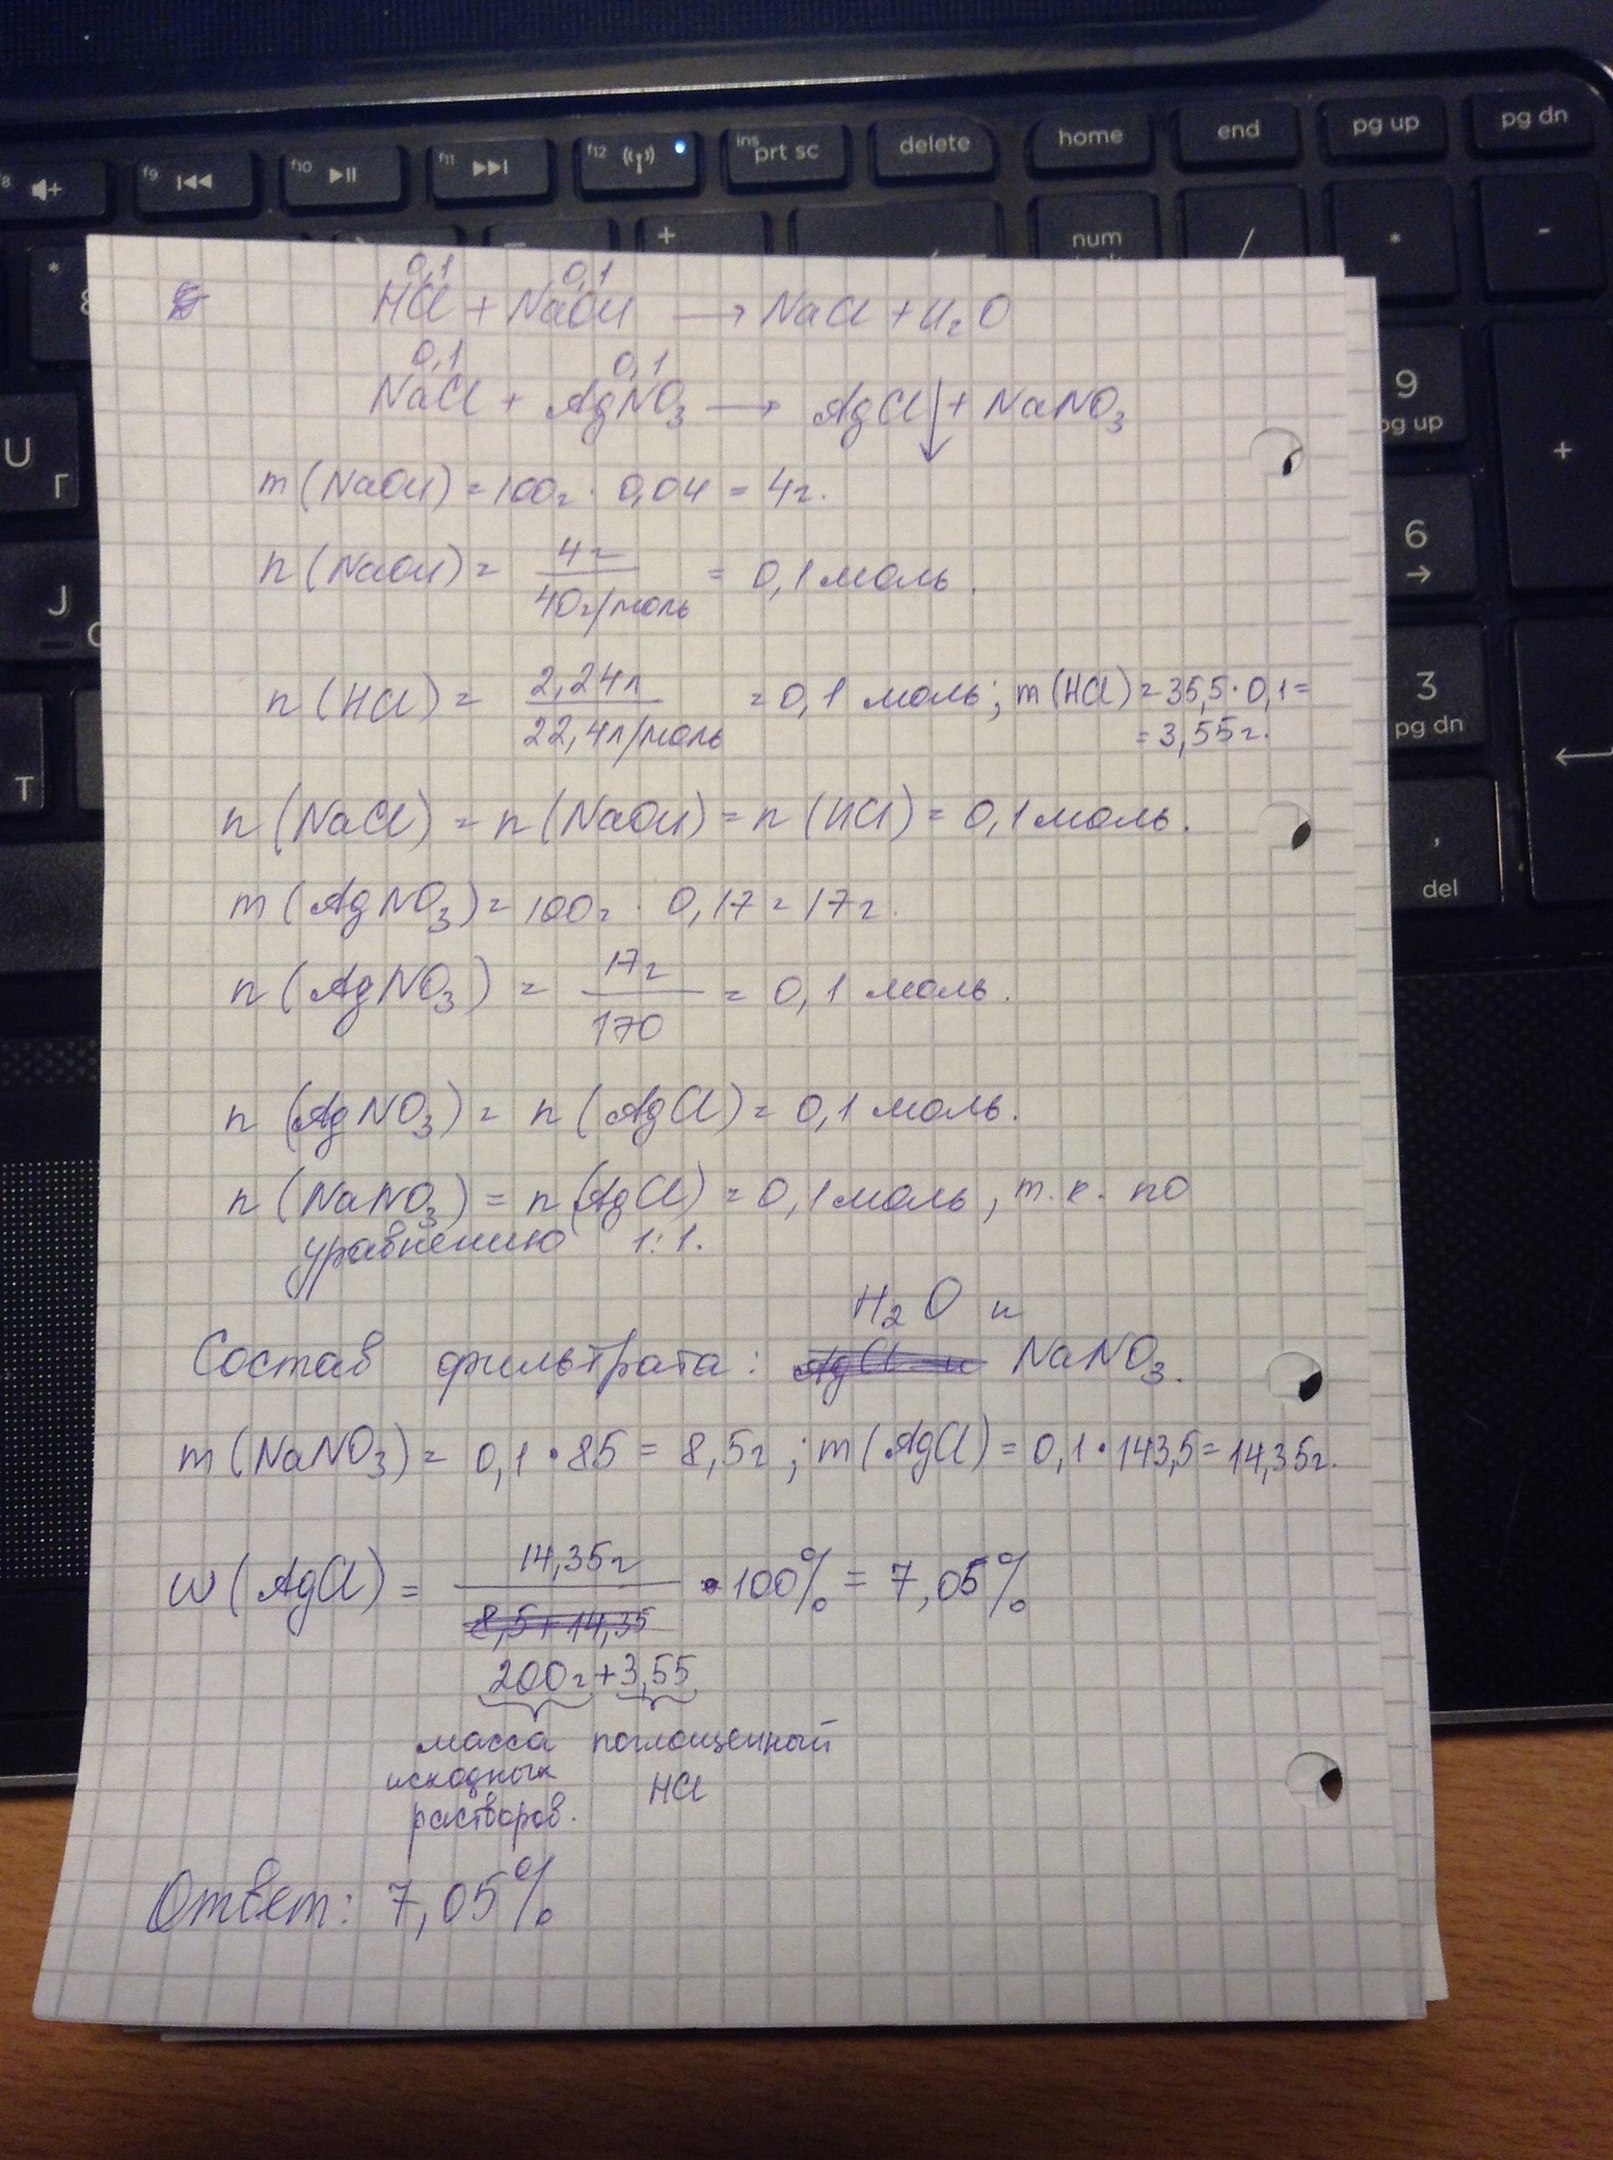 f8
f9
f10
f11
f12
ins
prt sc
delete
home
end
pg up
pg dn
num
*
8
+
-
/
*
-
U
Г
9
pg up
+
6
→
J
3
pg dn
Т
,
del
0,1 0,1
HCl + NaOH → NaCl + H₂O
0,1 0,1
NaCl + AgNO₃ → AgCl↓ + NaNO₃
m (NaOH) = 100г · 0,04 = 4г.
n (NaOH) = 4г / 40г/моль = 0,1 моль.
n (HCl) = 2,24л / 22,4л/моль = 0,1 моль; m (HCl) = 35,5 · 0,1 =
= 3,55г.
n (NaCl) = n (NaOH) = n (HCl) = 0,1 моль.
m (AgNO₃) = 100г · 0,17 = 17г.
n (AgNO₃) = 17г / 170 = 0,1 моль.
n (AgNO₃) = n (AgCl) = 0,1 моль.
n (NaNO₃) = n (AgCl) = 0,1 моль, т.к. по
уравнению 1:1.
H₂O и
Состав фильтрата: AgCl и NaNO₃.
m (NaNO₃) = 0,1 · 85 = 8,5г; m (AgCl) = 0,1 · 143,5 = 14,35г.
w (AgCl) = 14,35г / 8,5 + 14,35 · 100% = 7,05%
200г + 3,55
масса поглощенный
исходных HCl
растворов.
Ответ: 7,05%